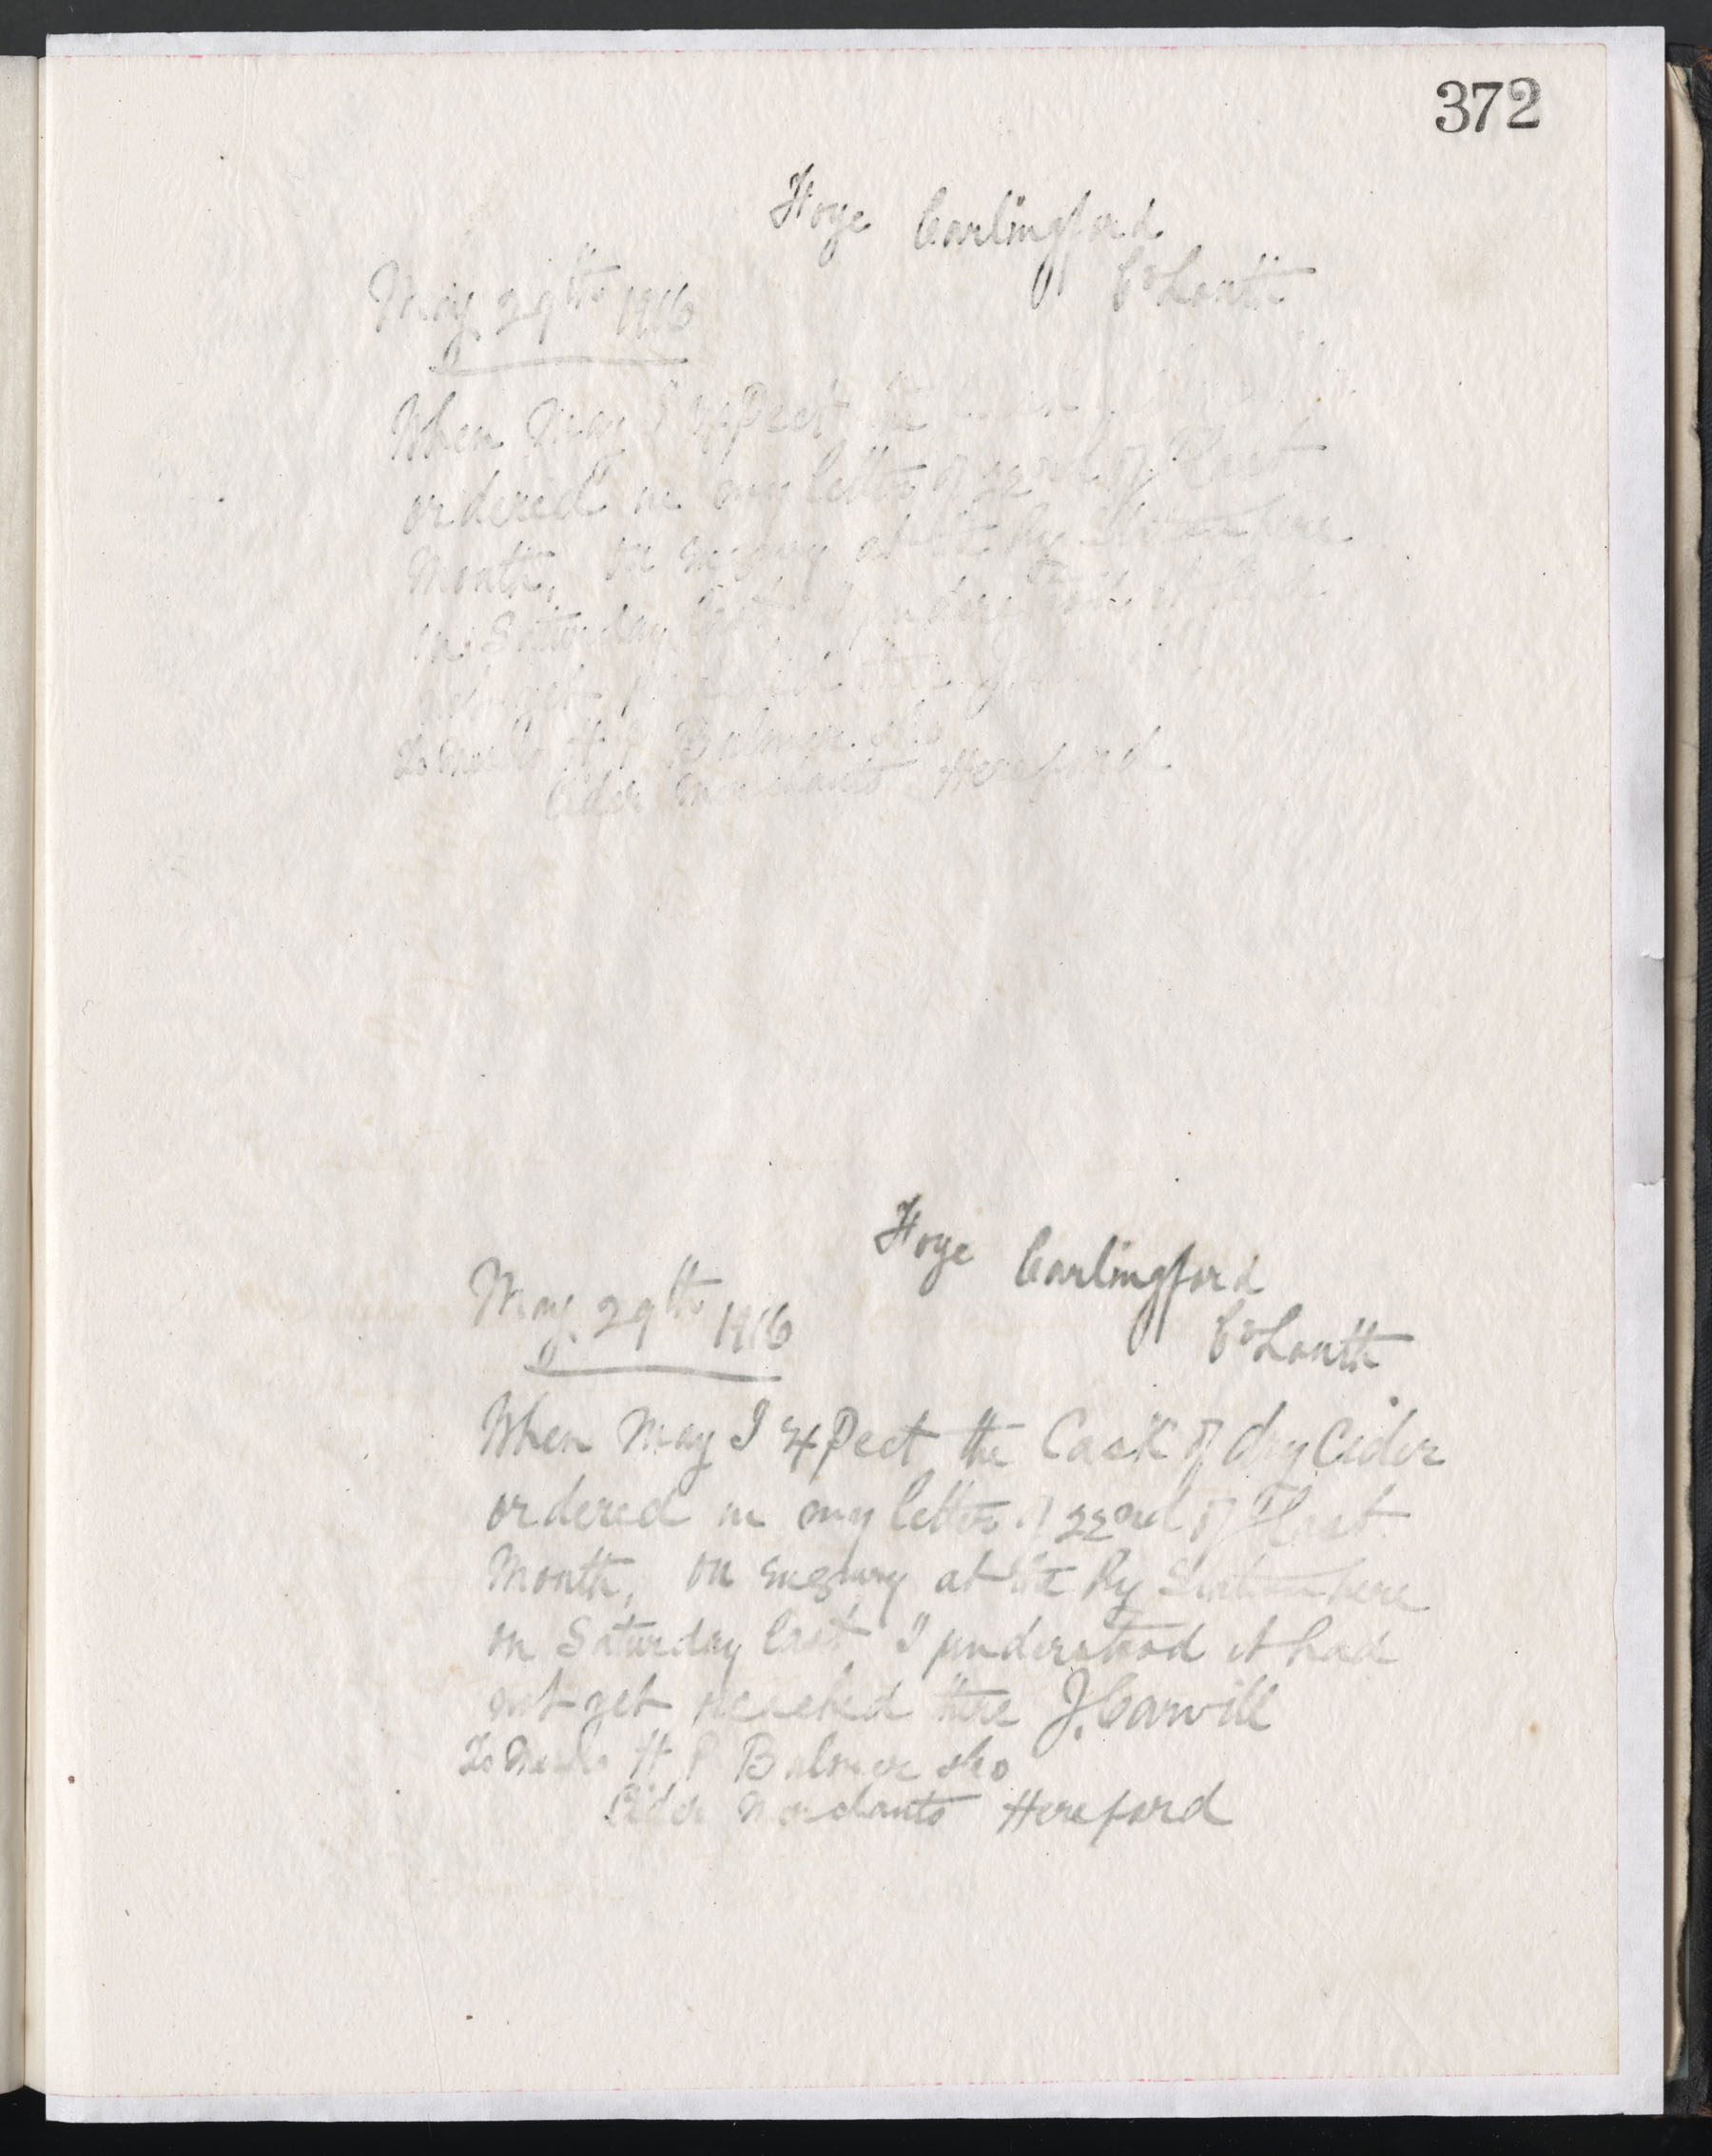 372
Foye Carlingford
Co Louth
May 29th 1916
When may I expect the
ordered in my letter of 22nd of last
Month, on enquiry at the Ry Station here
on Saturday last I understood it had
not yet
To Messrs H P Bulmer & Co
Cider Merchants Hereford
Foye Carlingford
Co Louth
May 29th 1916
When may I expect the Cask of dry Cider
ordered in my letter of 22nd of last
Month, on enquiry at the Ry Station here
on Saturday last I understood it had
not yet reached there J. Carvill
To Messrs H P Bulmer & Co
Cider Merchants Hereford